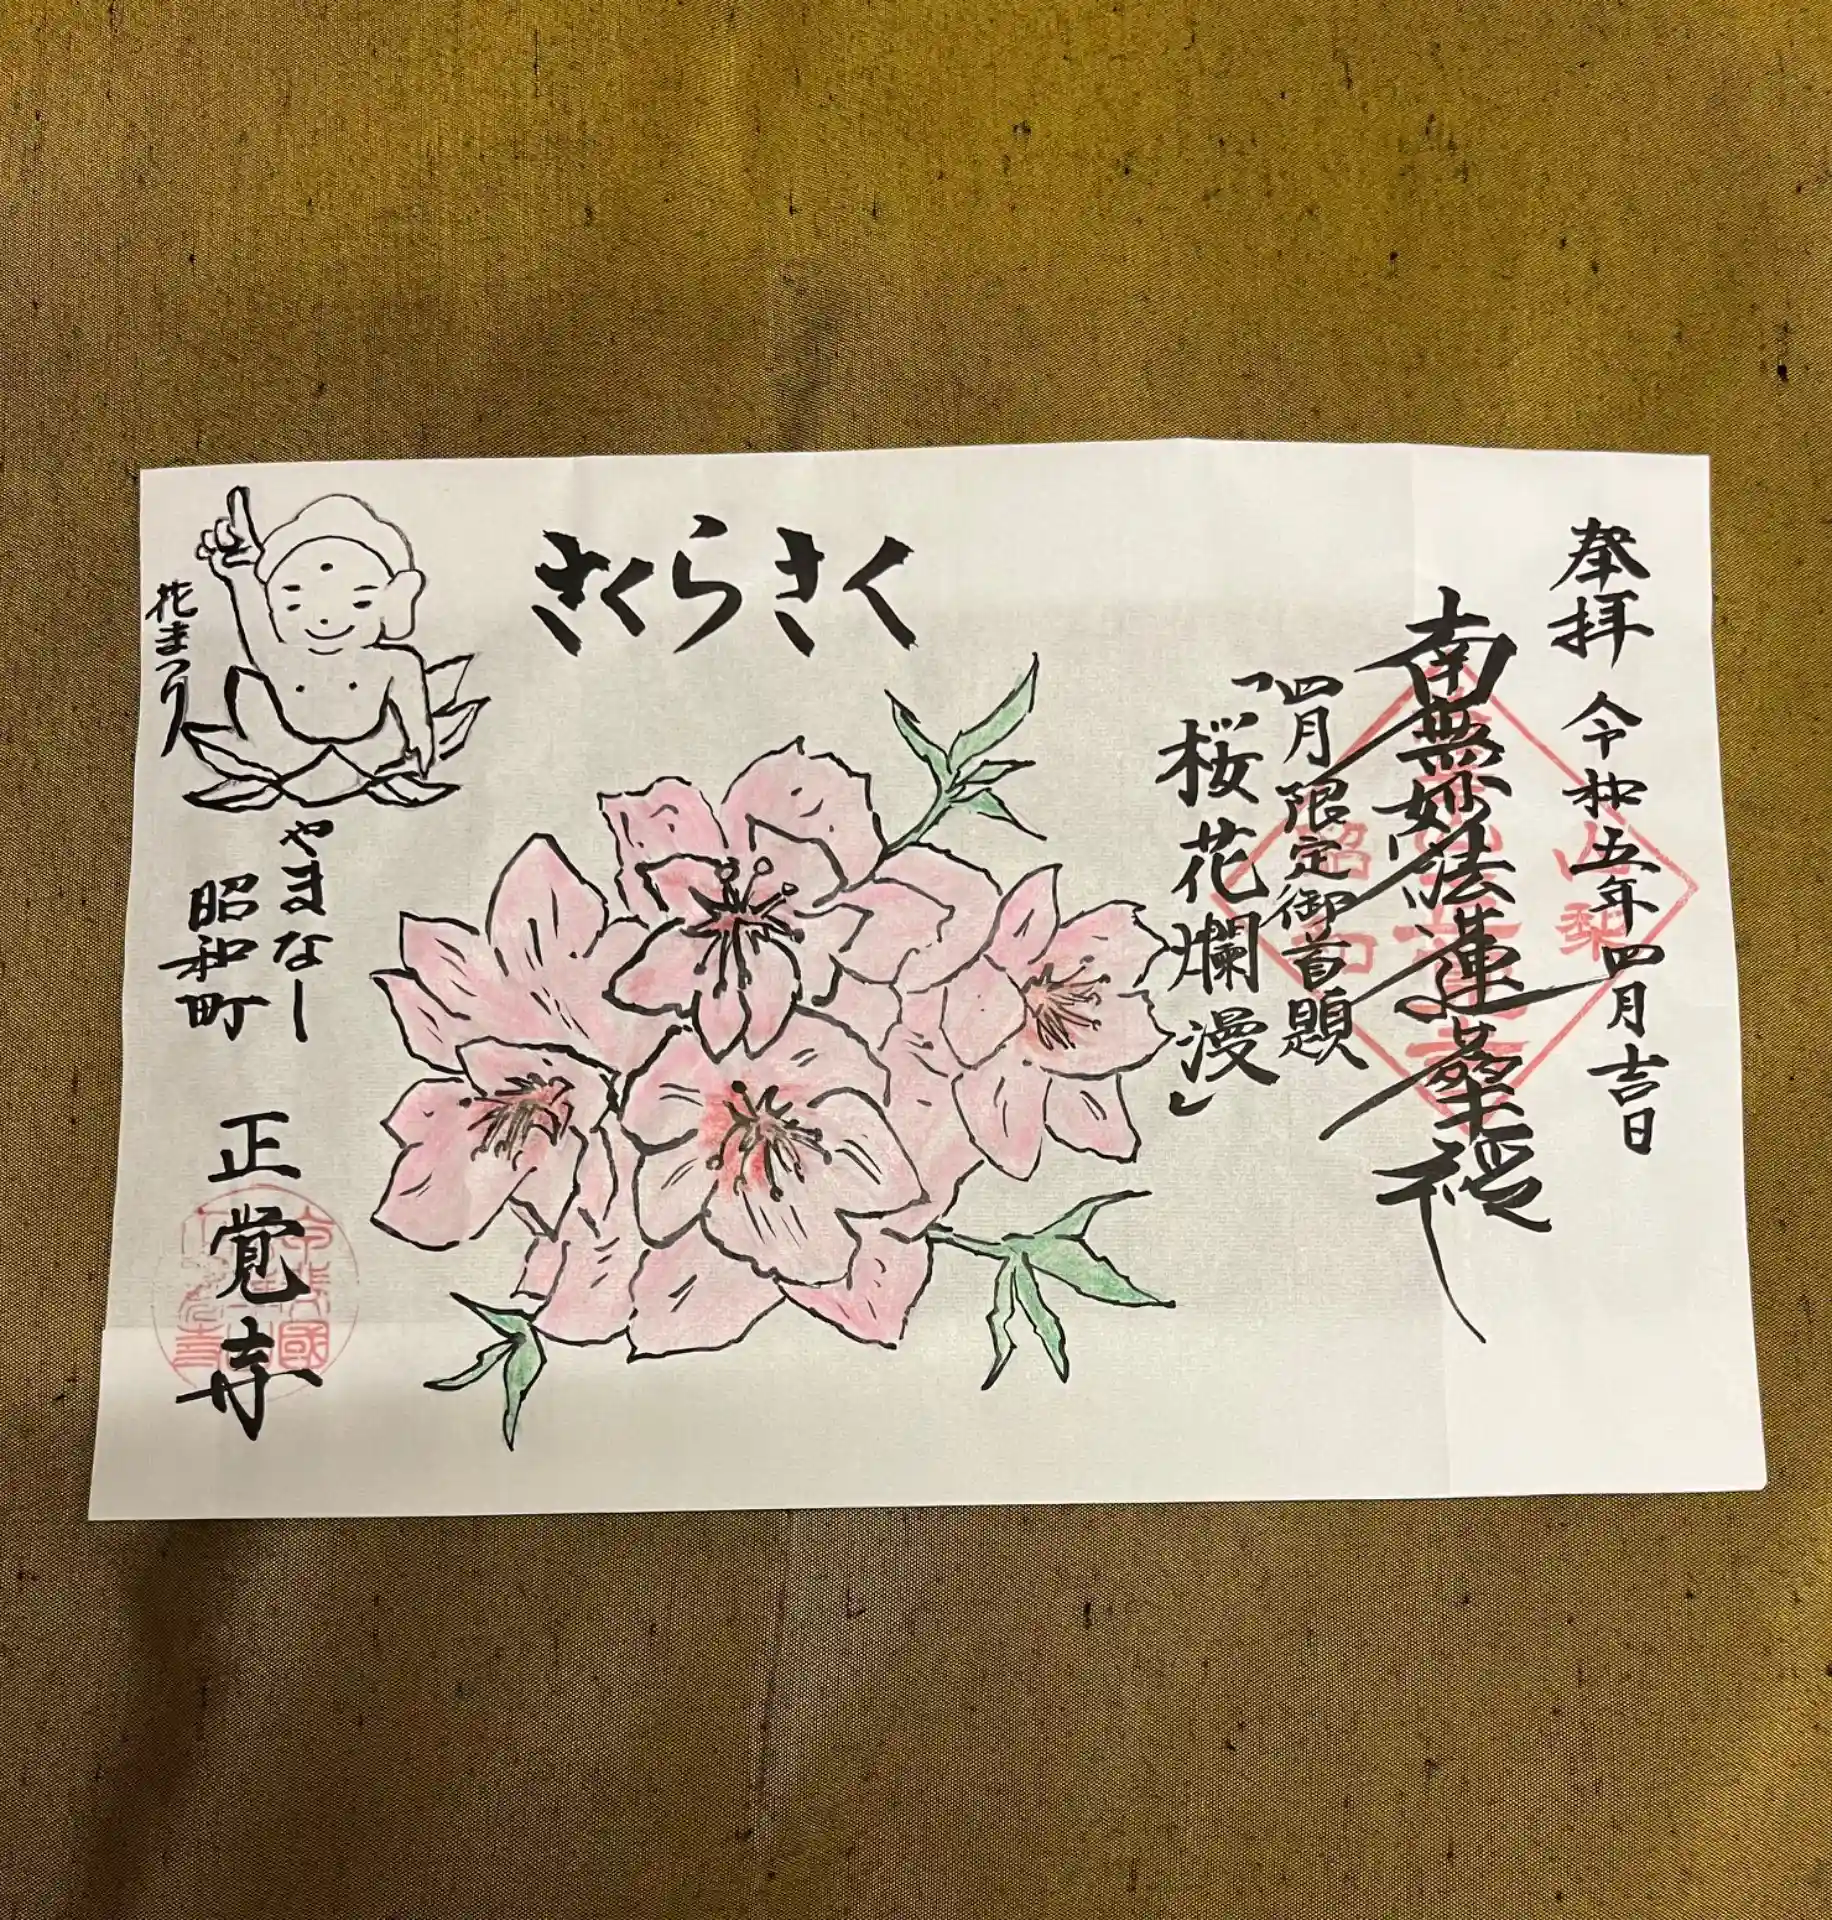 奉拝 令和五年四月吉日
南無妙法蓮華経
四月限定御首題
「桜花爛漫」
さくらさく
花まつり
やまなし
昭和町
正覚寺
山梨
昭和